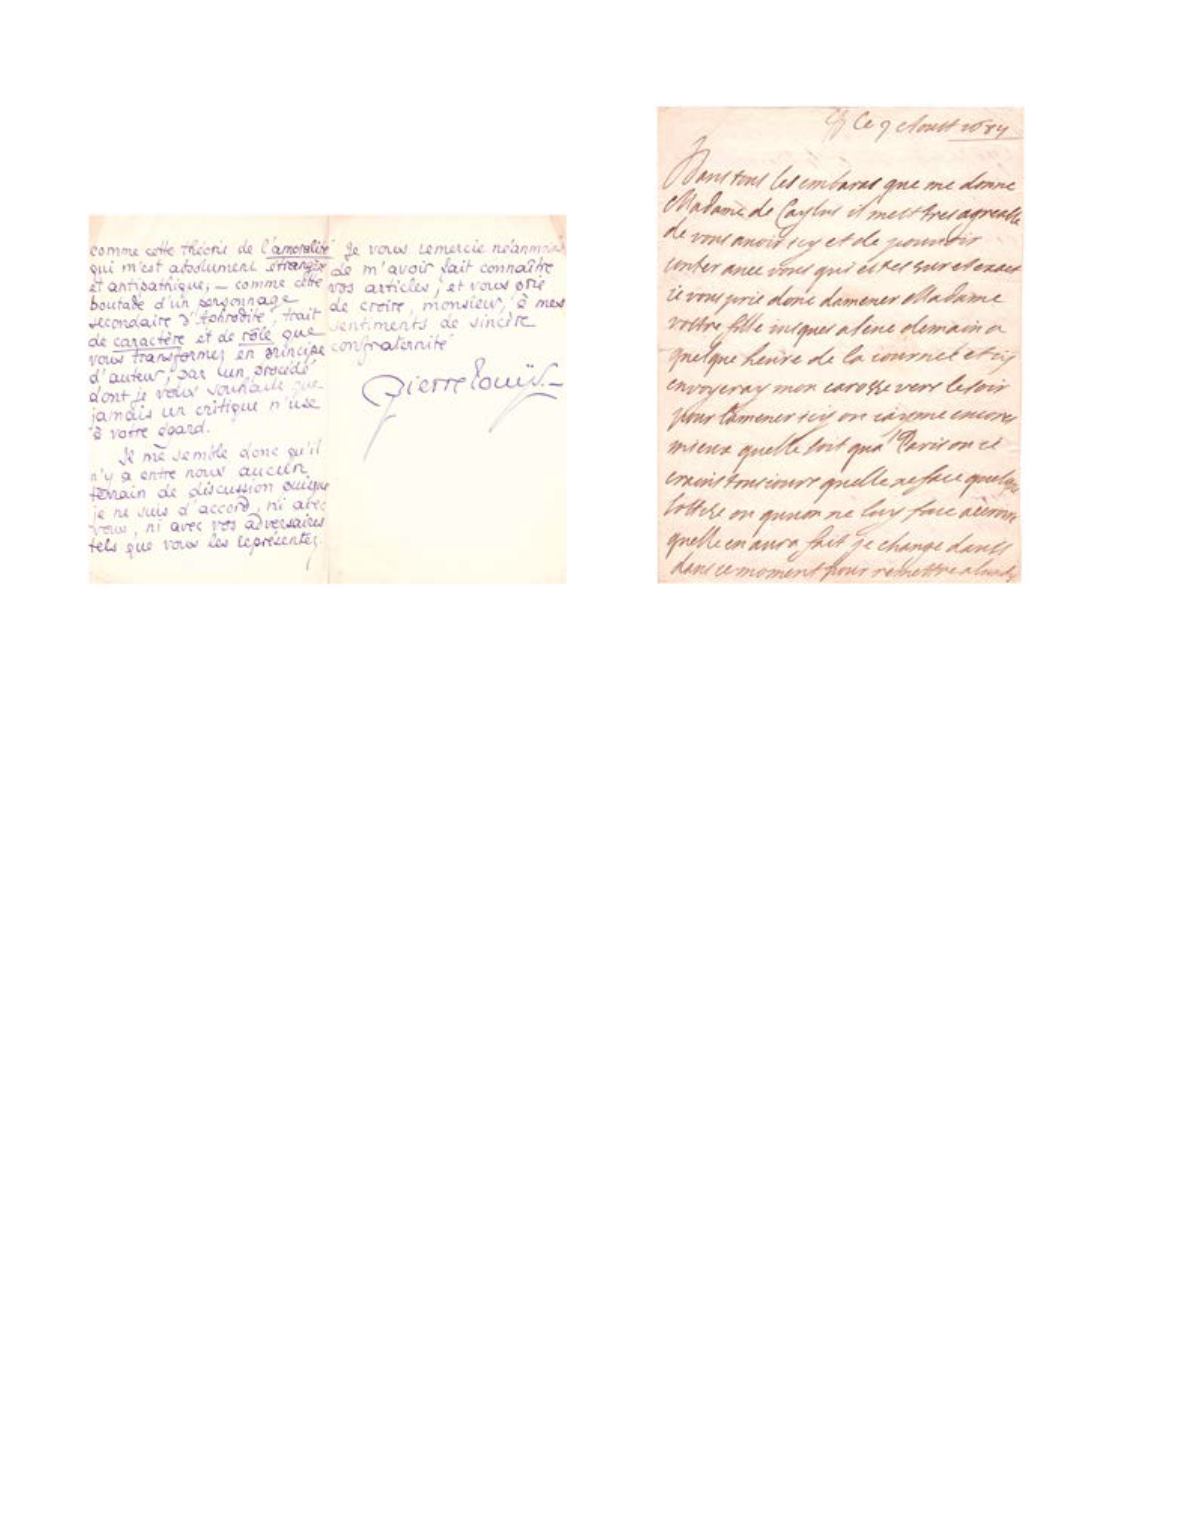 comme cette théorie de l'amoralité
qui m'est absolument étrangère
et antipathique, — comme cette
boutade d'un personnage
secondaire d'Aphrodite, trait
de caractère et de rôle que
vous transformez en principe
d'auteur, par un procédé
dont je vous souhaite que
jamais un critique n'use
à votre égard.
Il me semble donc qu'il
n'y a entre nous aucun
terrain de discussion puisque
je ne suis d'accord, ni avec
vous, ni avec vos adversaires
tels que vous les représentez.
Je vous remercie néanmoins
de m'avoir fait connaître
vos articles, et vous prie
de croire, monsieur, à mes
sentiments de sincère
confraternité
Pierre Louÿs
Ce 9 Aoust
Dans tous les embaras que me donne
Madame de Caylus il mest tres agreable
de vous avoir icy et de pouvoir
conter avec vous qui estes sur et exact
ie vous prie donc damener Madame
vostre fille iusques a demain a
quelque heure de la iournee et iy
envoyeray mon carosse vers le soir
pour lamener icy on ayme encore
mieux quelle soit qua Paris on
craint tousiours quelle ne face quelque
sottise ou quon ne luy face acroire
quelle en aura fait ie change
dans ce moment pour remettre a lundy